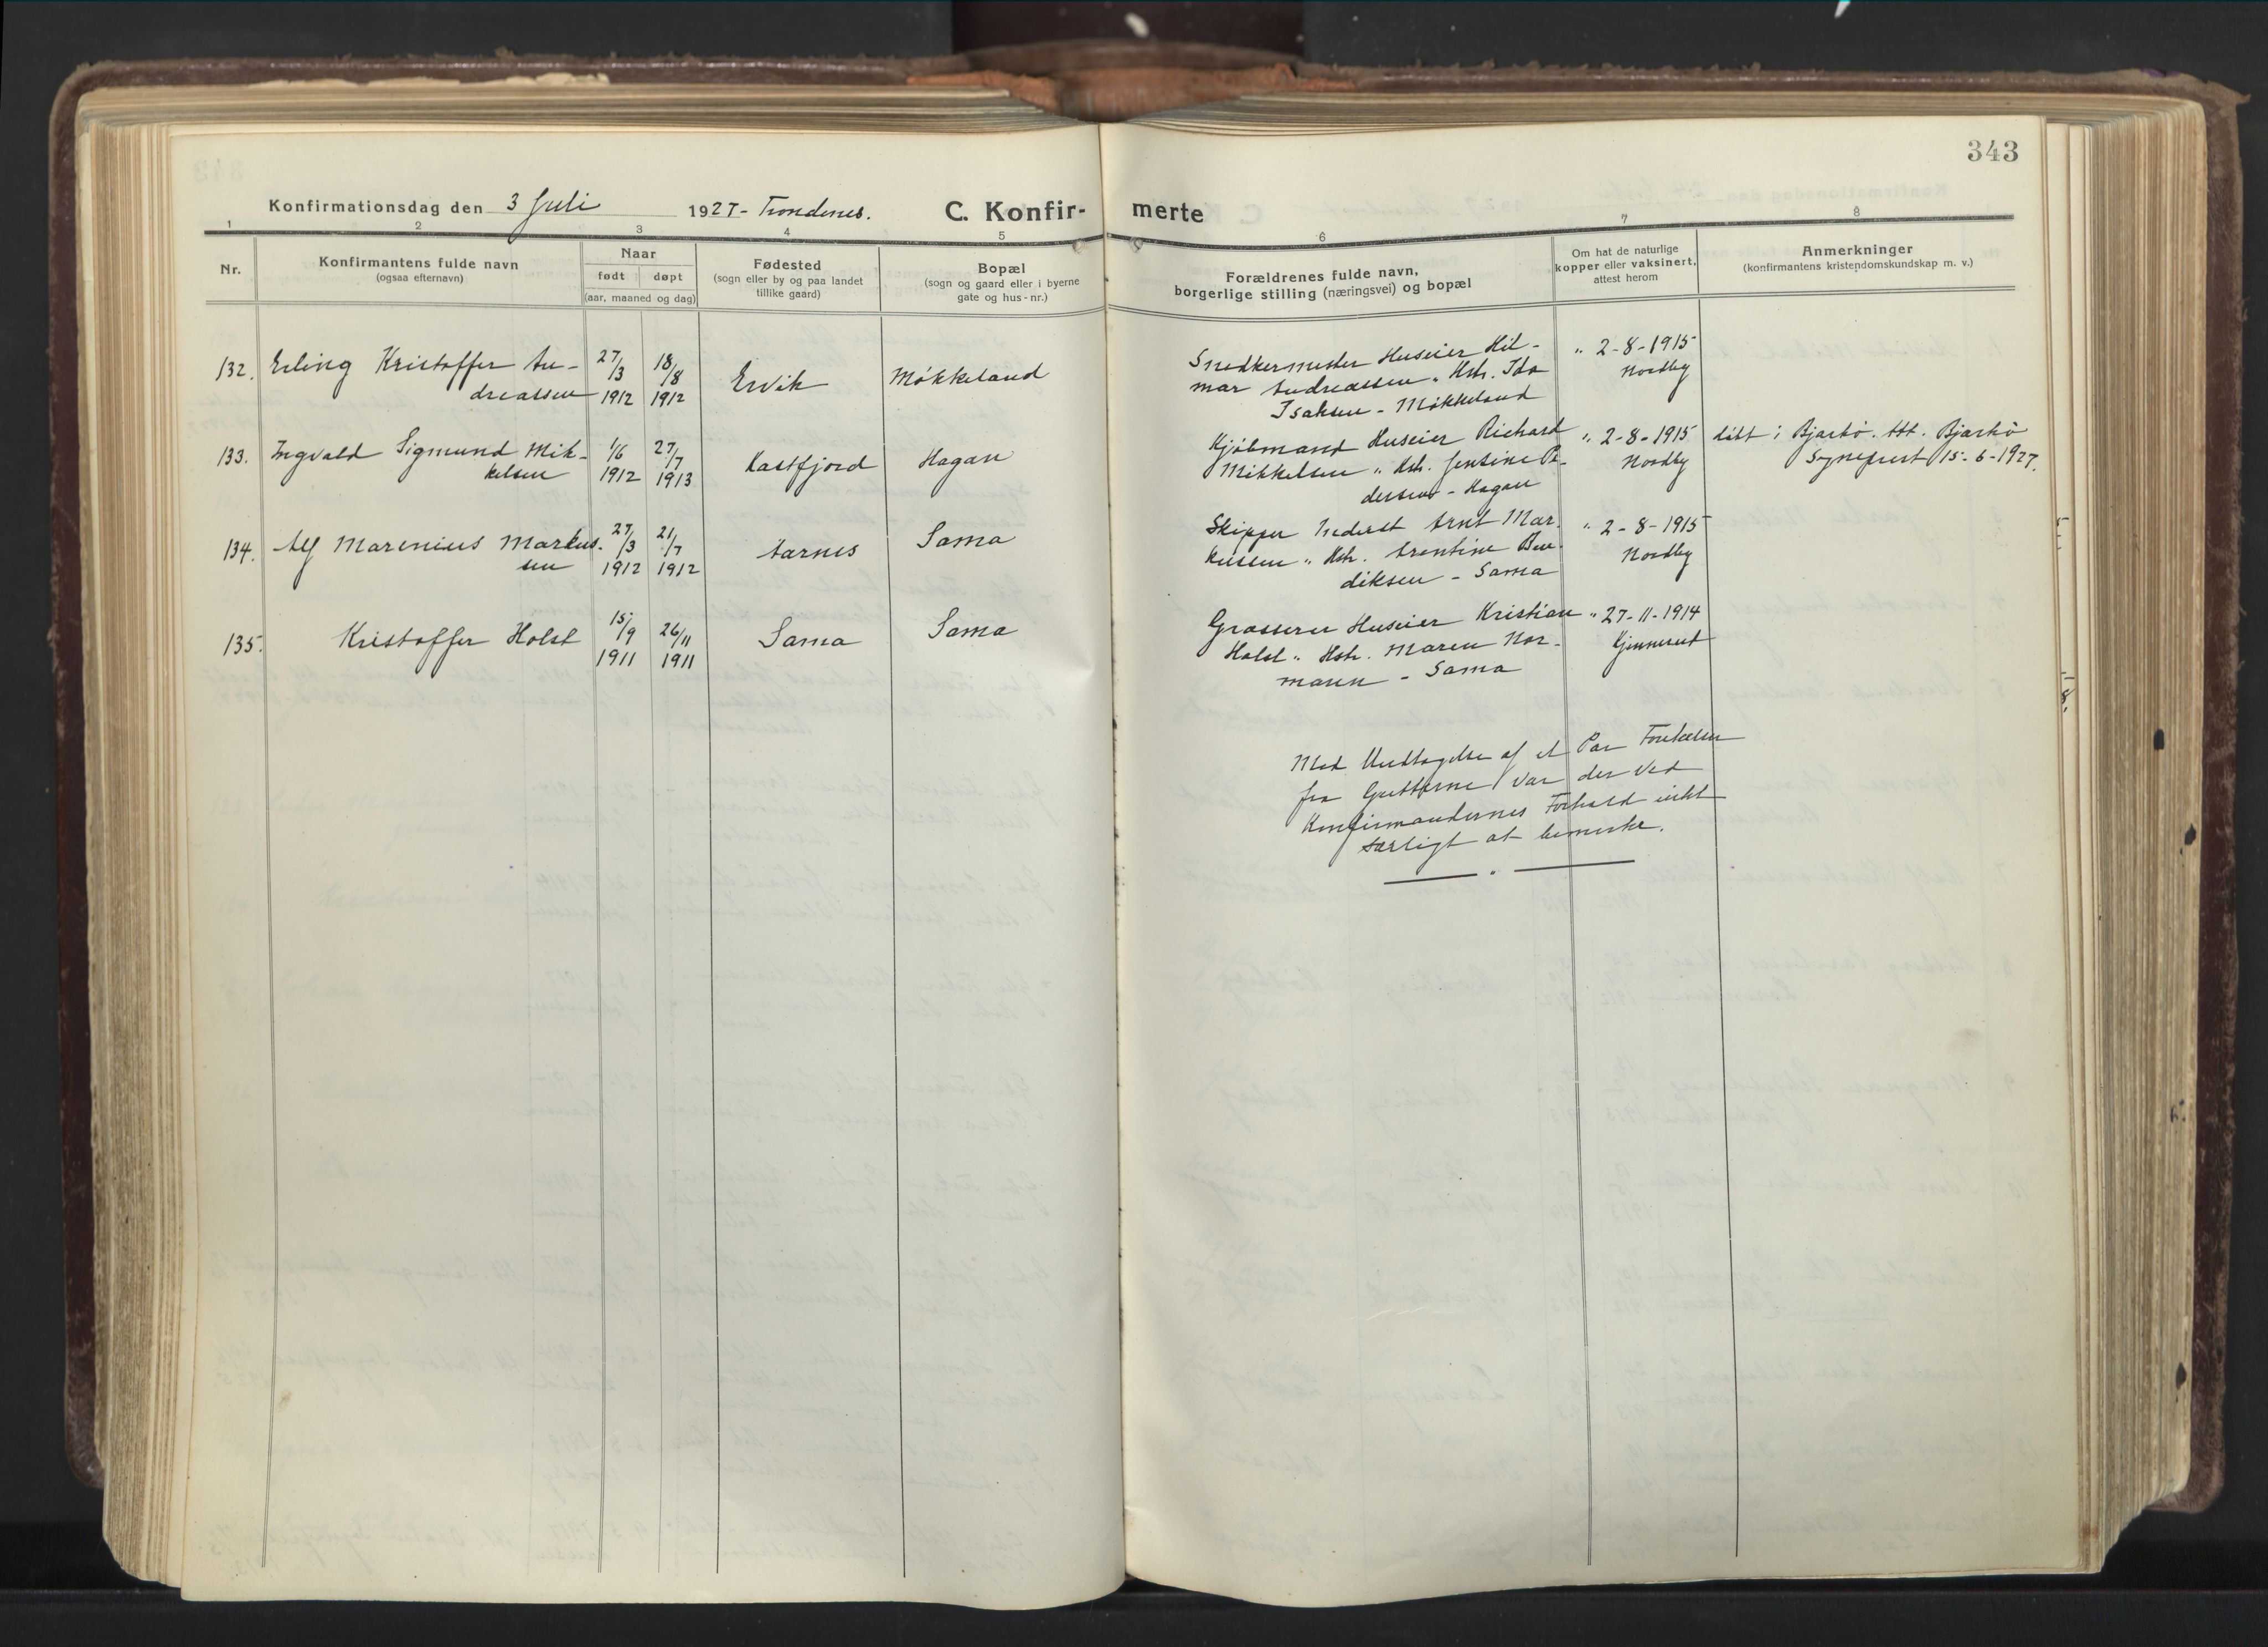 343
Konfirmationsdag den 3 Juli 1927 - Trondenes. C. Konfir- merte
1 2 3 4 5 6 7 8
Nr.
Konfirmantens fulde navn
(ogsaa efternavn)
Naar
født døpt
(aar, maaned og dag)
Fødested
(sogn eller by og paa landet
tillike gaard)
Bopæl
(sogn og gaard eller i byerne
gate og hus-nr.)
Forældrenes fulde navn,
borgerlige stilling (næringsvei) og bopæl
Om hat de naturlige
kopper eller vaksinert,
attest herom
Anmerkninger
(konfirmantens kristendomskundskap m. v.)
132. Erling Kristoffer An-
dreassen
27/3 1912
18/8 1912
Ervik
Møkkeland
Snedkermester Huseier Hil-
mar Andreassen " Hstr. Ida
Isaksen - Møkkeland
" 2-8-1915
Nordby
133. Ingvald Sigmund Mik-
kelsen
1/6 1912
27/7 1913
Kastfjord
Hagan
Kjøbmand Huseier Richard
Mikkelsen " Hstr. Jensine Pe-
dersen - Hagan
" 2-8-1915
Nordby
døbt i Bjarkø. Att. Bjarkø
Sogneprest 15-6-1927.
134. Alf Marenius Markus-
sen
27/3 1912
21/7 1912
Aarnes
Sama
Skipper Inderst Arnt Mar-
kussen " Hstr. Arentine Ben-
diksen - Sama
" 2-8-1915
Nordby
135. Kristoffer Holst
15/9 1911
26/11 1911
Sama
Sama
Grosserer Huseier Kristian
Holst " Hstr. Maren Nor-
mann - Sama
" 27-11-1914
Med Undtagelse af et Par Forteelser
fra Gutterne var der ved
Konfirmandernes Forhold intet
særligt at bemerke.